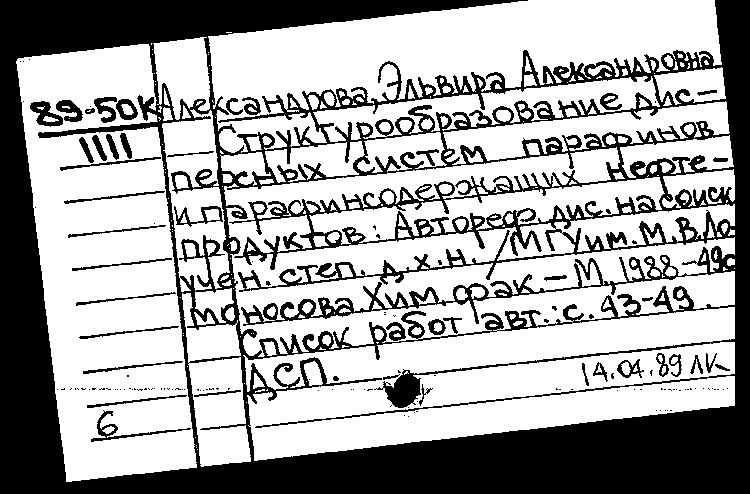 89-50К Александрова, Эльвира Александровна
1111 Структурообразование дис-
персных систем парафинов
и парафинсодержащих нефте-
продуктов: Автореф. дис. на соиск.
учен. степ. д.х.н. / МГУ им. М.В. Ло-
моносова. Хим. фак. – М, 1988 – 49с
Список работ авт.: с. 43-49.
ДСП.
14.04.89 ЛК
6